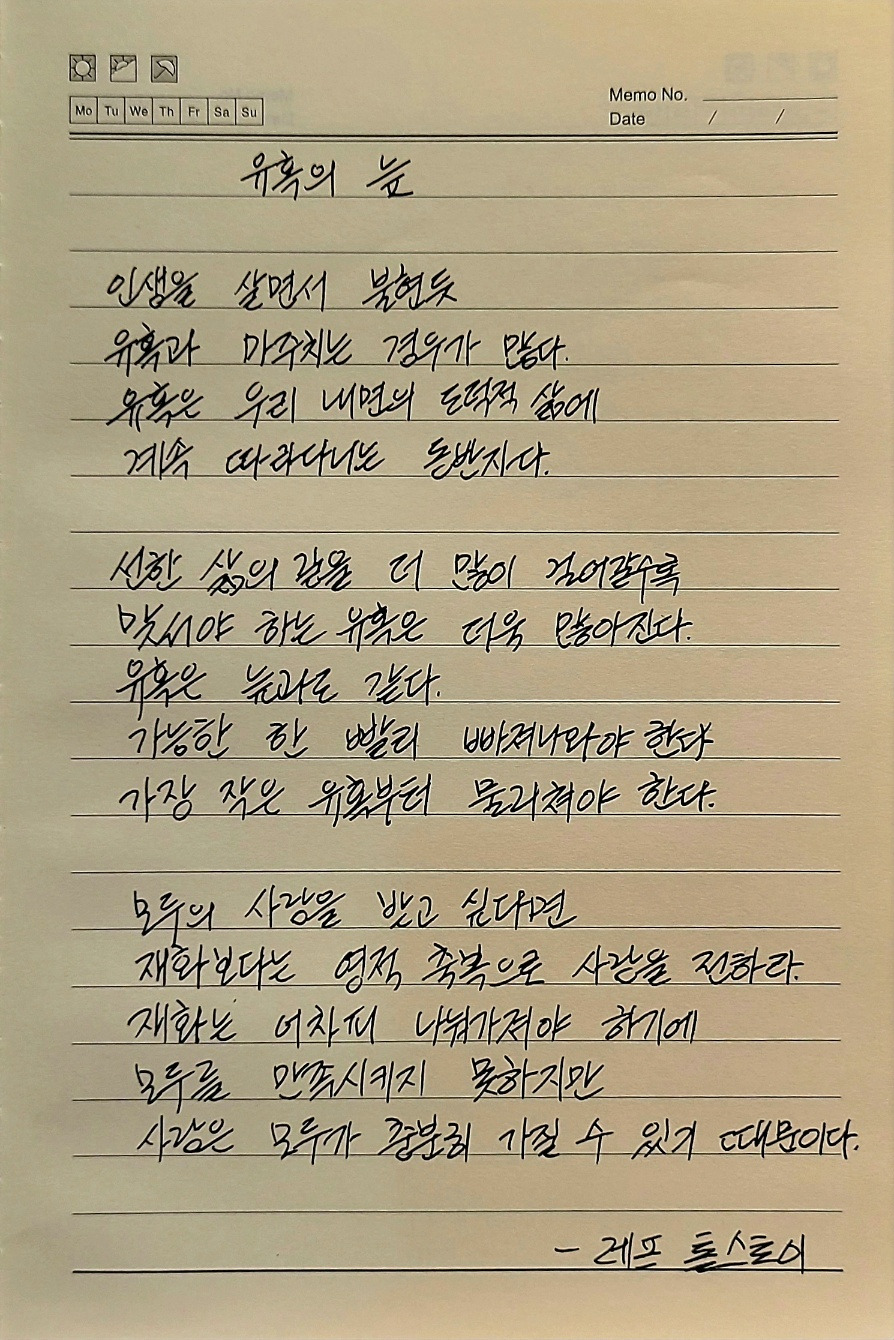 Mo Tu We Th Fr Sa Su
Memo No.
Date / /
유혹의 늪
인생을 살면서 불현듯
유혹과 마주치는 경우가 많다.
유혹은 우리 내면의 도덕적 삶에
계속 따라다니는 동반자다.
선한 삶의 길을 더 많이 걸어갈수록
맞서야 하는 유혹은 더욱 많아진다.
유혹은 늪과도 같다.
가능한 한 빨리 빠져나와야 한다
가장 작은 유혹부터 물리쳐야 한다.
모두의 사랑을 받고 싶다면
재화보다는 영적 축복으로 사랑을 전하라.
재화는 어차피 나눠가져야 하기에
모두를 만족시키지 못하지만
사랑은 모두가 충분히 가질 수 있기 때문이다.
- 레프 톨스토이